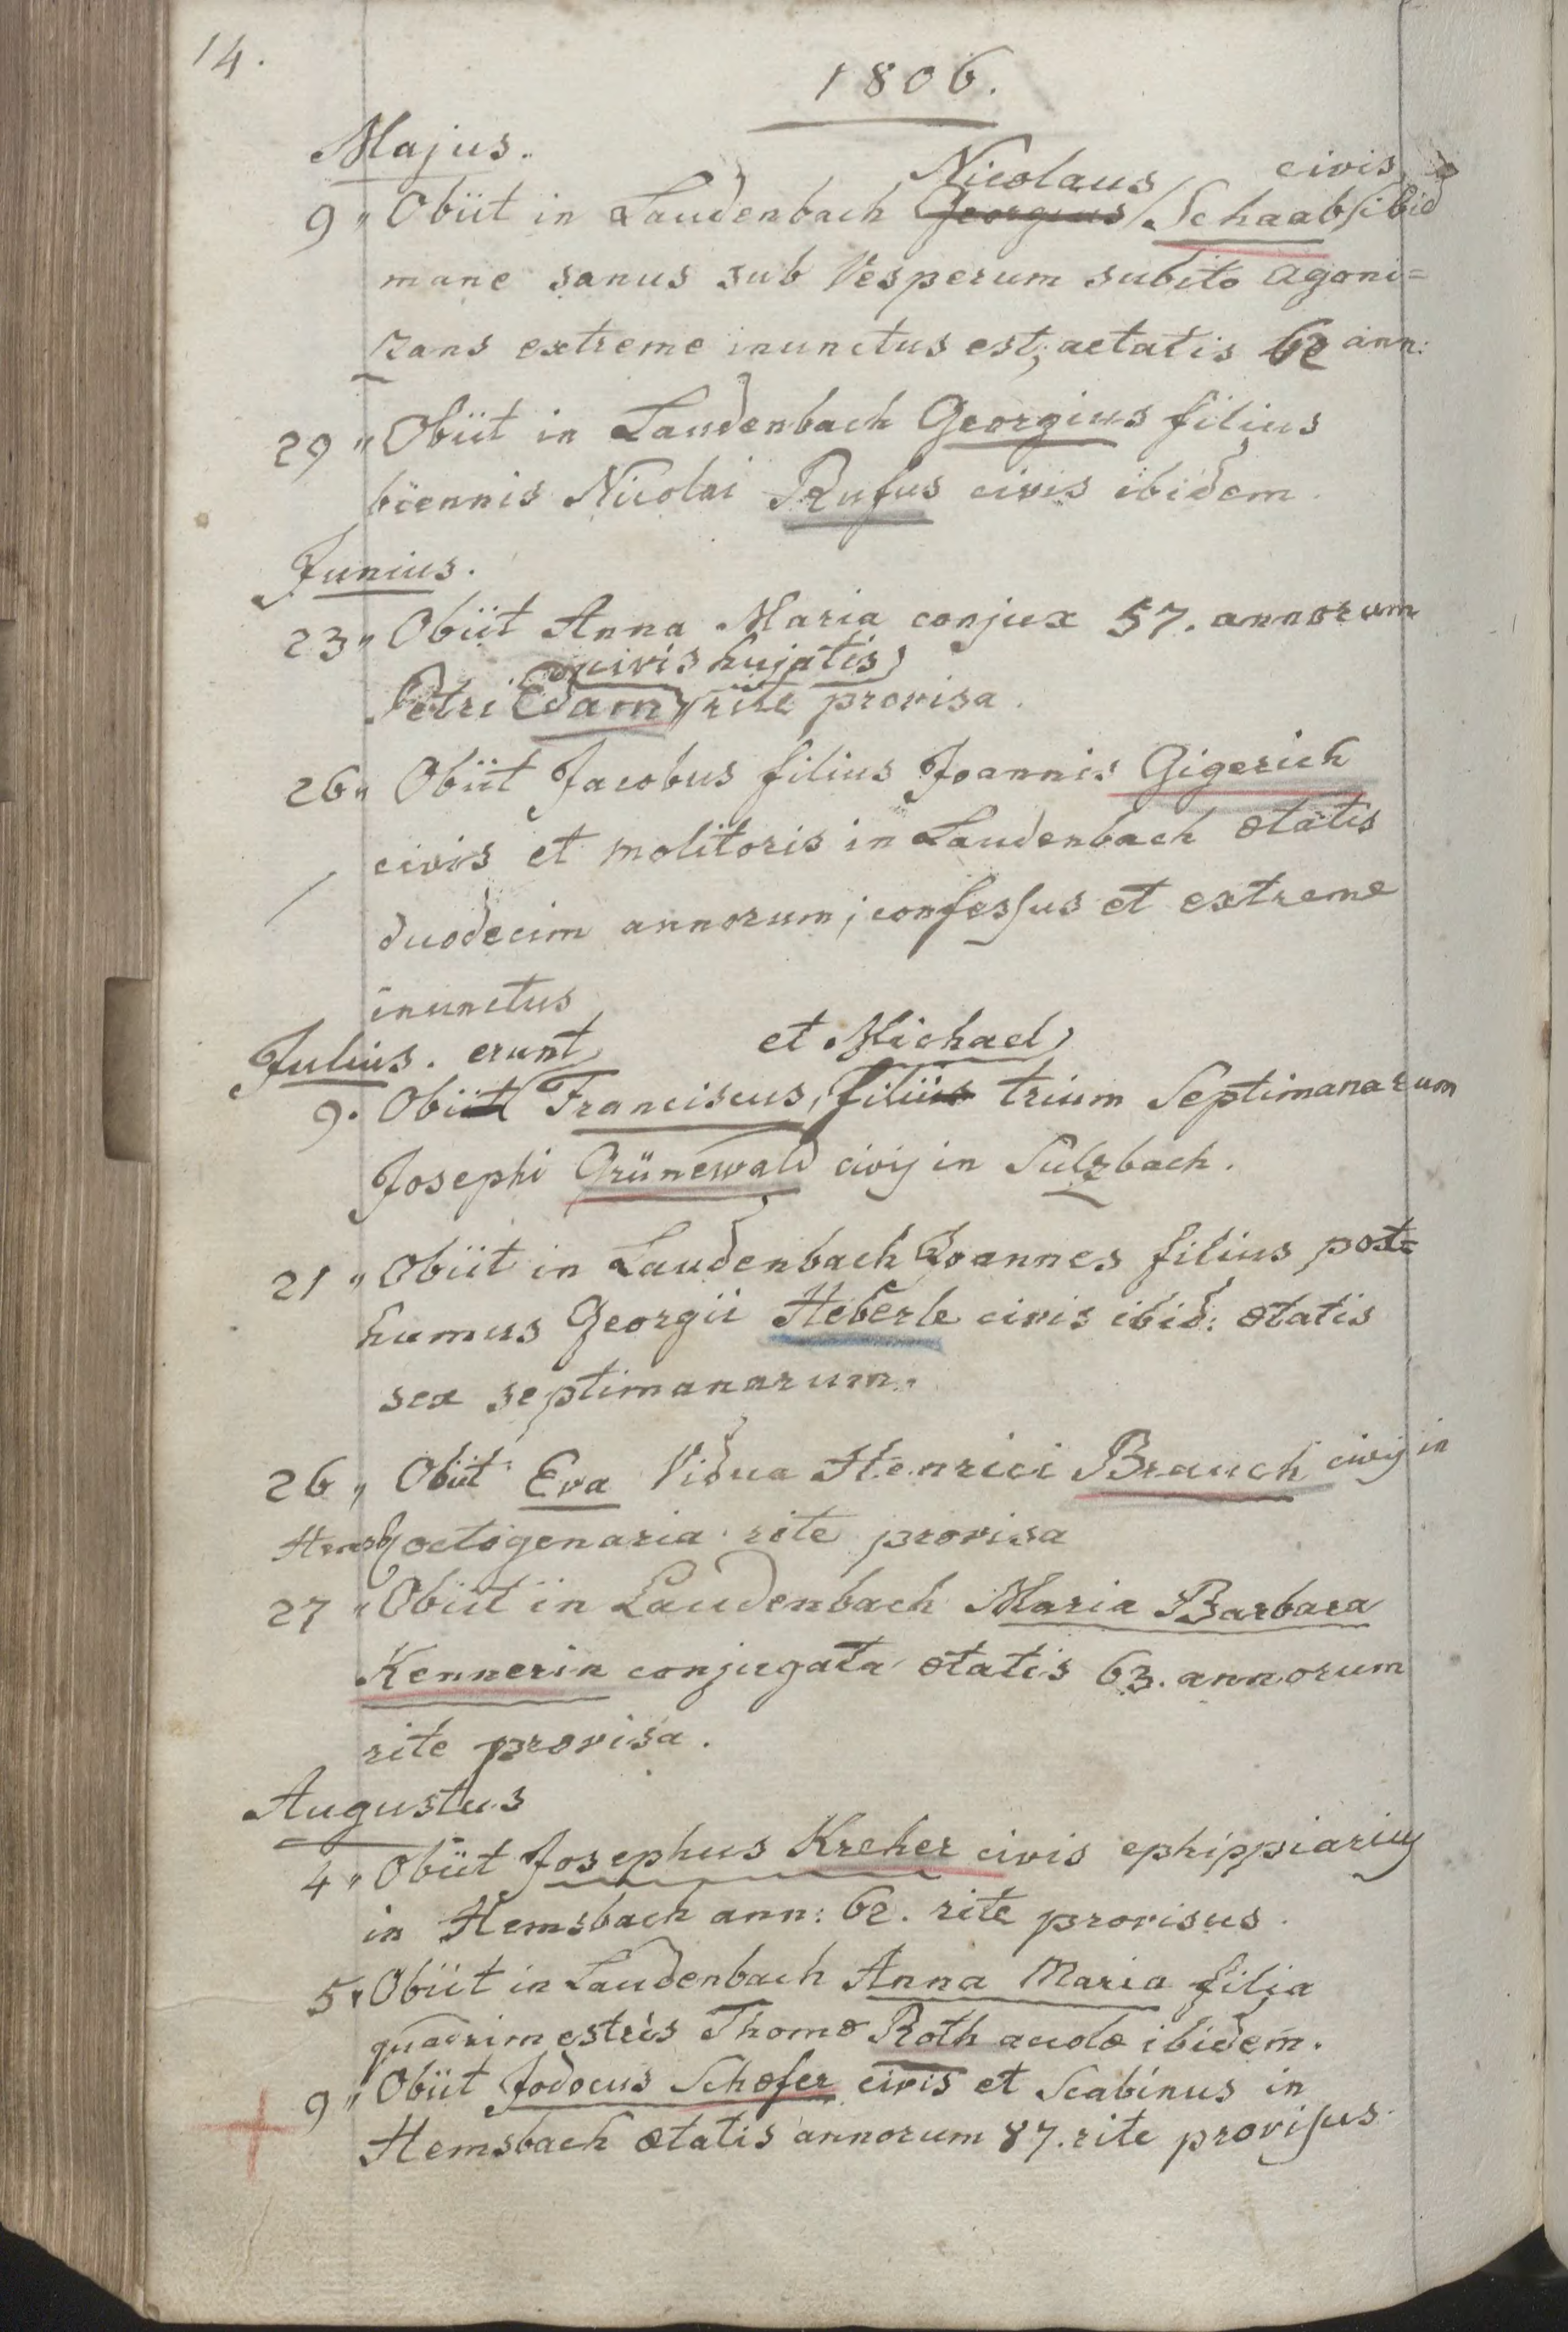 14.
1806.
Majus.
Nicolaus civis
9 " Obiit in Laudenbach Georgius Schaab ibid
mane sanus sub Vesperum subito agoni=
zans extreme inunctus est, aetatis 62 ann:
29 " Obiit in Laudenbach Georgius filius
biennis Nicolai Rufus civis ibidem.
Junius.
23 " Obiit Anna Maria conjux 57. annorum
civis hujatis
Petri Edam rite provisa.
26 " Obiit Jacobus filius Joannis Gigerich
civis et molitoris in Laudenbach ætatis
duodecim annorum; confessus et extreme
inunctus
Julius. erunt et Michael
9. Obiit Franciscus, filius trium Septimanarum
Josephi Grünewald civis in Sulzbach.
21 " Obiit in Laudenbach Joannes filius post=
humus Georgii Heberle civis ibid: ætatis
sex septimanarum.
26 " Obiit Eva Vidua Henrici Brauch civis in
Hemsb octogenaria rite provisa
27 " Obiit in Laudenbach Maria Barbara
Kennerin conjugata ætatis 63. annorum
rite provisa.
Augustus
4 " Obiit Josephus Kreher civis ephippiarius
in Hemsbach ann: 62. rite provisus.
5 " Obiit in Laudenbach Anna Maria filia
quadrimestris Thomæ Roth acolæ ibidem.
9 " Obiit Jodocus Schæfer civis et Scabinus in
Hemsbach ætatis annorum 87. rite provisus.